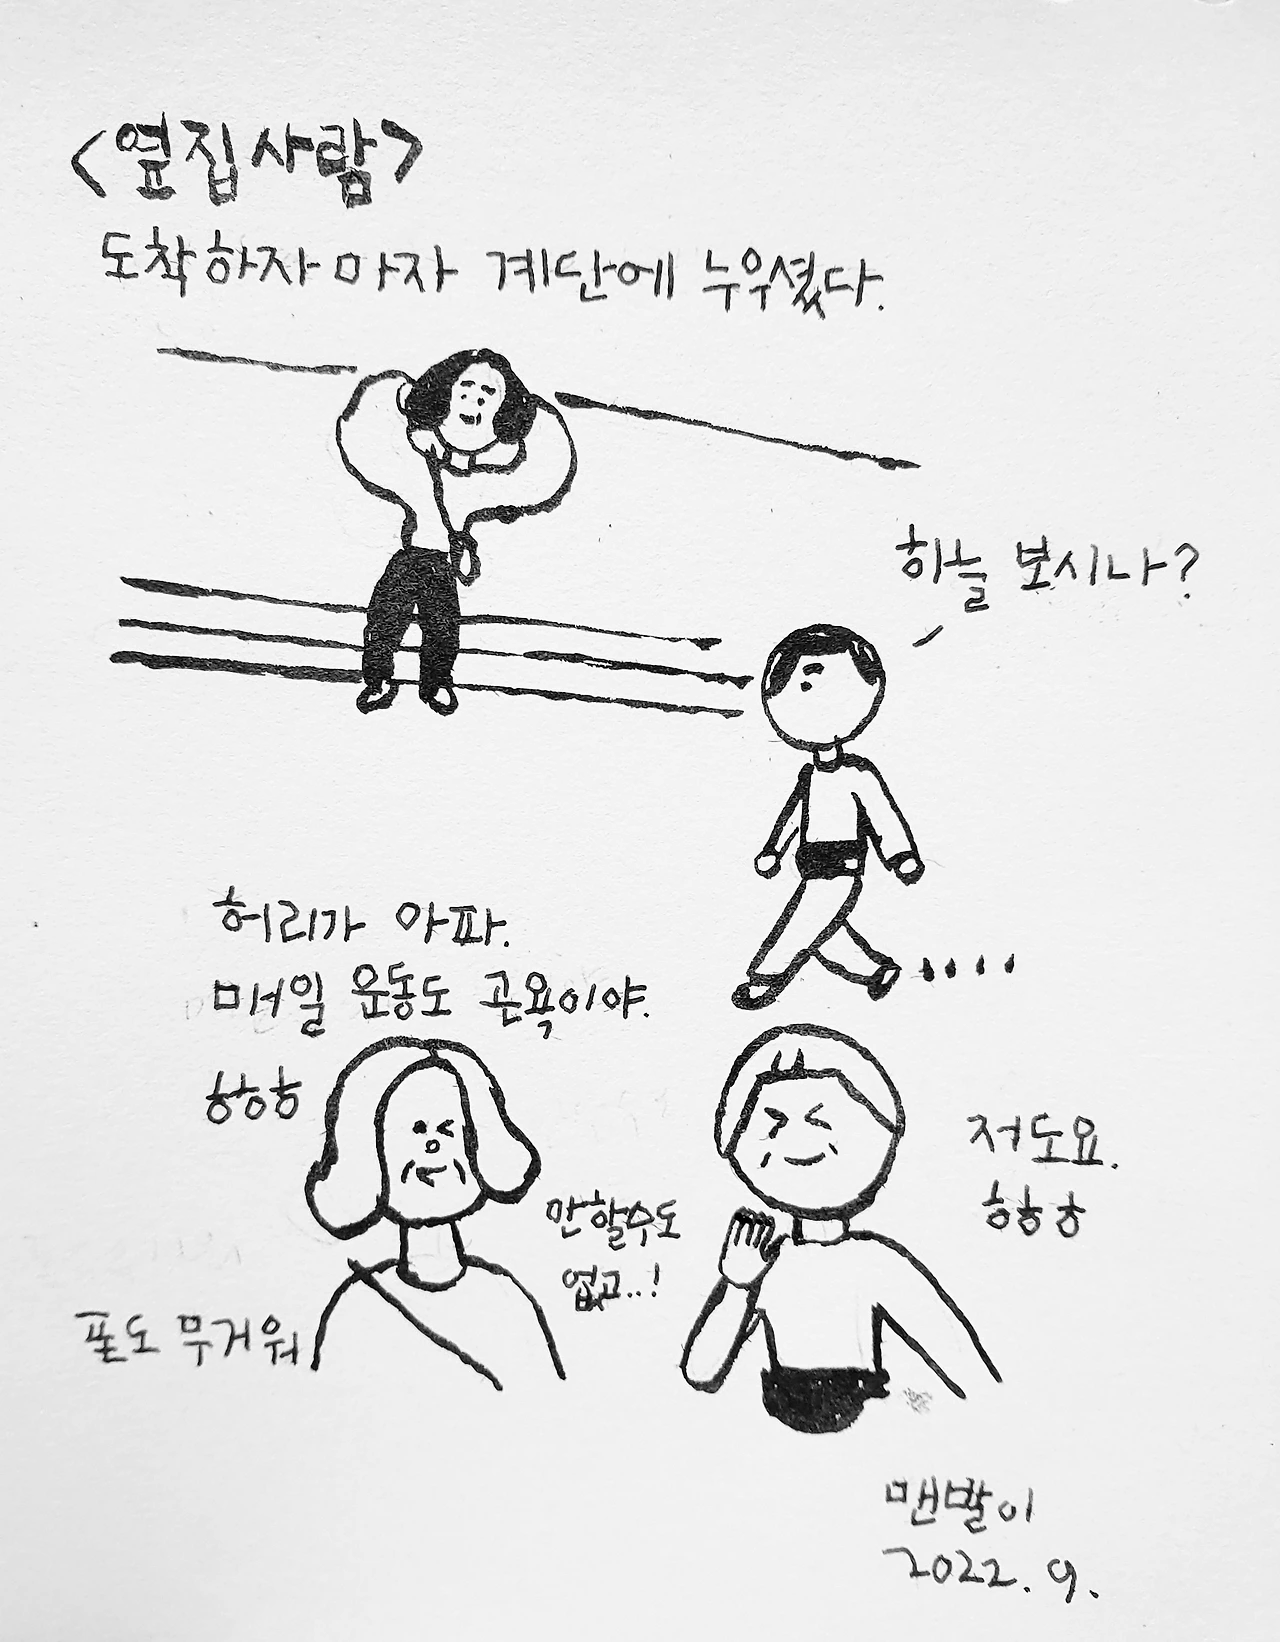 <옆집사람>
도착하자마자 계단에 누우셨다.
하늘 보시나?
허리가 아파.
매일 운동도 곤욕이야.
흥흥흥
저도요.
흥흥흥
안할수도
없고..!
포도 무거워
맨발이
2022. 9.